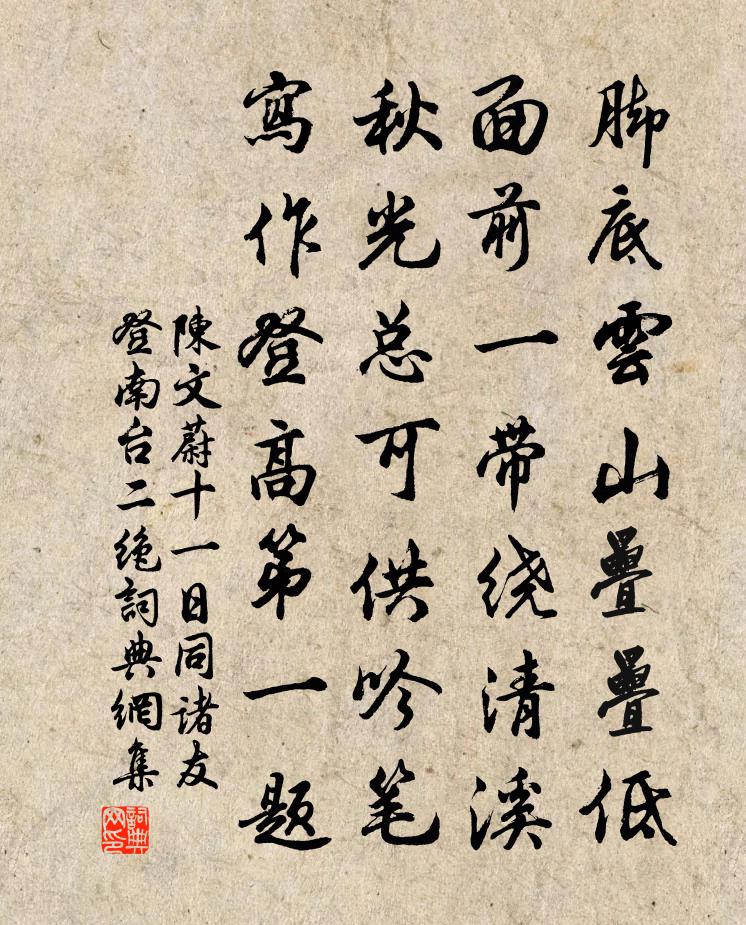 脚底雲山疊疊低
面前一带绕清溪
秋光总可供吟笔
寫作登高第一题
陳文蔚十一日同諸友
登南台二絶詞典網集
詞典
网印